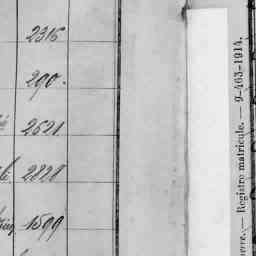 2316
290.
2521
2828
1599
erre. — Registre matricule. — 9-463-1914.